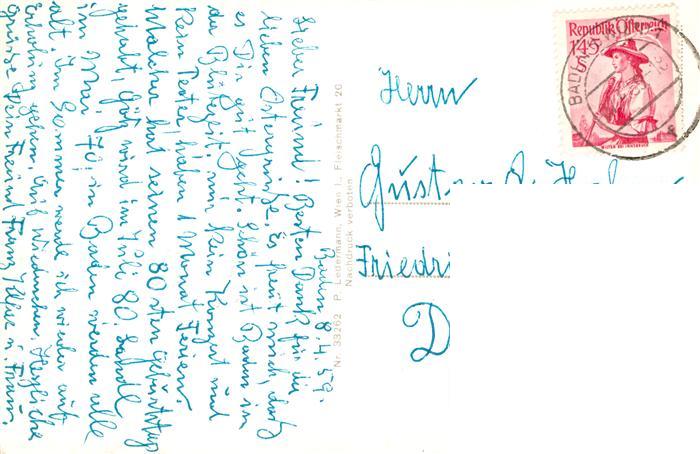 Baden, 8. 4. 59.
Lieber Freund! Besten Dank für die
lieben Ostergrüsse. Es freut mich, daß
es Dir gut geht. Schön ist Baden in
der Blütezeit, nur kein Konzert und
kein Teater, haben 1 Monat Ferien.
Malcher hat seinen 80 sten Geburtstag
gehabt, Götz wird im Juli 80.
im Mai 70, in Baden werden alle
alt. Im Sommer werde ich wieder auf
Erholung gehen. Auf Wiedersehen. Herzliche
Grüsse Dein Freund Franz u. Frau.
Nr. 33262 P. Ledermann, Wien I., Fleischmarkt 20
Nachdruck verboten
Republik Österreich
1'45 S
BADEN
Herrn
Gustav
Friedri
D